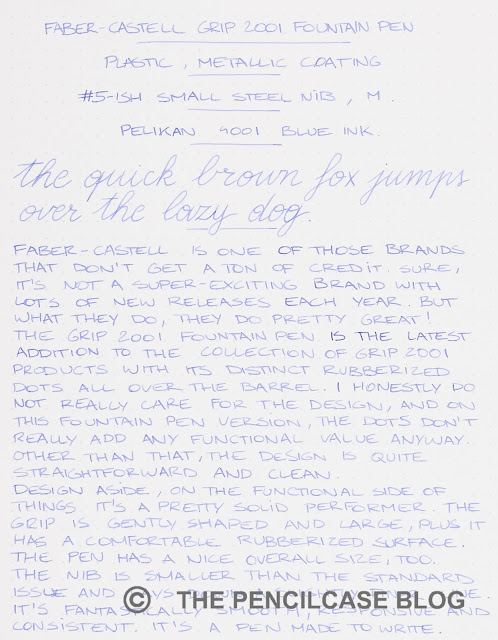 FABER-CASTELL GRIP 2001 FOUNTAIN PEN
PLASTIC, METALLIC COATING
#5-ISH SMALL STEEL NIB, M.
PELIKAN 4001 BLUE INK.
the quick brown fox jumps
over the lazy dog.
FABER-CASTELL IS ONE OF THOSE BRANDS
THAT DON'T GET A TON OF CREDIT. SURE,
IT'S NOT A SUPER-EXCITING BRAND WITH
LOTS OF NEW RELEASES EACH YEAR. BUT
WHAT THEY DO, THEY DO PRETTY GREAT!
THE GRIP 2001 FOUNTAIN PEN IS THE LATEST
ADDITION TO THE COLLECTION OF GRIP 2001
PRODUCTS WITH ITS DISTINCT RUBBERIZED
DOTS ALL OVER THE BARREL. I HONESTLY DO
NOT REALLY CARE FOR THE DESIGN, AND ON
THIS FOUNTAIN PEN VERSION, THE DOTS DON'T
REALLY ADD ANY FUNCTIONAL VALUE ANYWAY.
OTHER THAN THAT, THE DESIGN IS QUITE
STRAIGHTFORWARD AND CLEAN.
DESIGN ASIDE, ON THE FUNCTIONAL SIDE OF
THINGS IT'S A PRETTY SOLID PERFORMER. THE
GRIP IS GENTLY SHAPED AND LARGE, PLUS IT
HAS A COMFORTABLE RUBBERIZED SURFACE.
THE PEN HAS A NICE OVERALL SIZE, TOO.
THE NIB IS SMALLER THAN THE STANDARD
ISSUE AND
© THE PENCILCASE BLOG
IT'S FANTASTICALLY SMOOTH, RESPONSIVE AND
CONSISTENT. IT'S A PEN MADE TO WRITE.